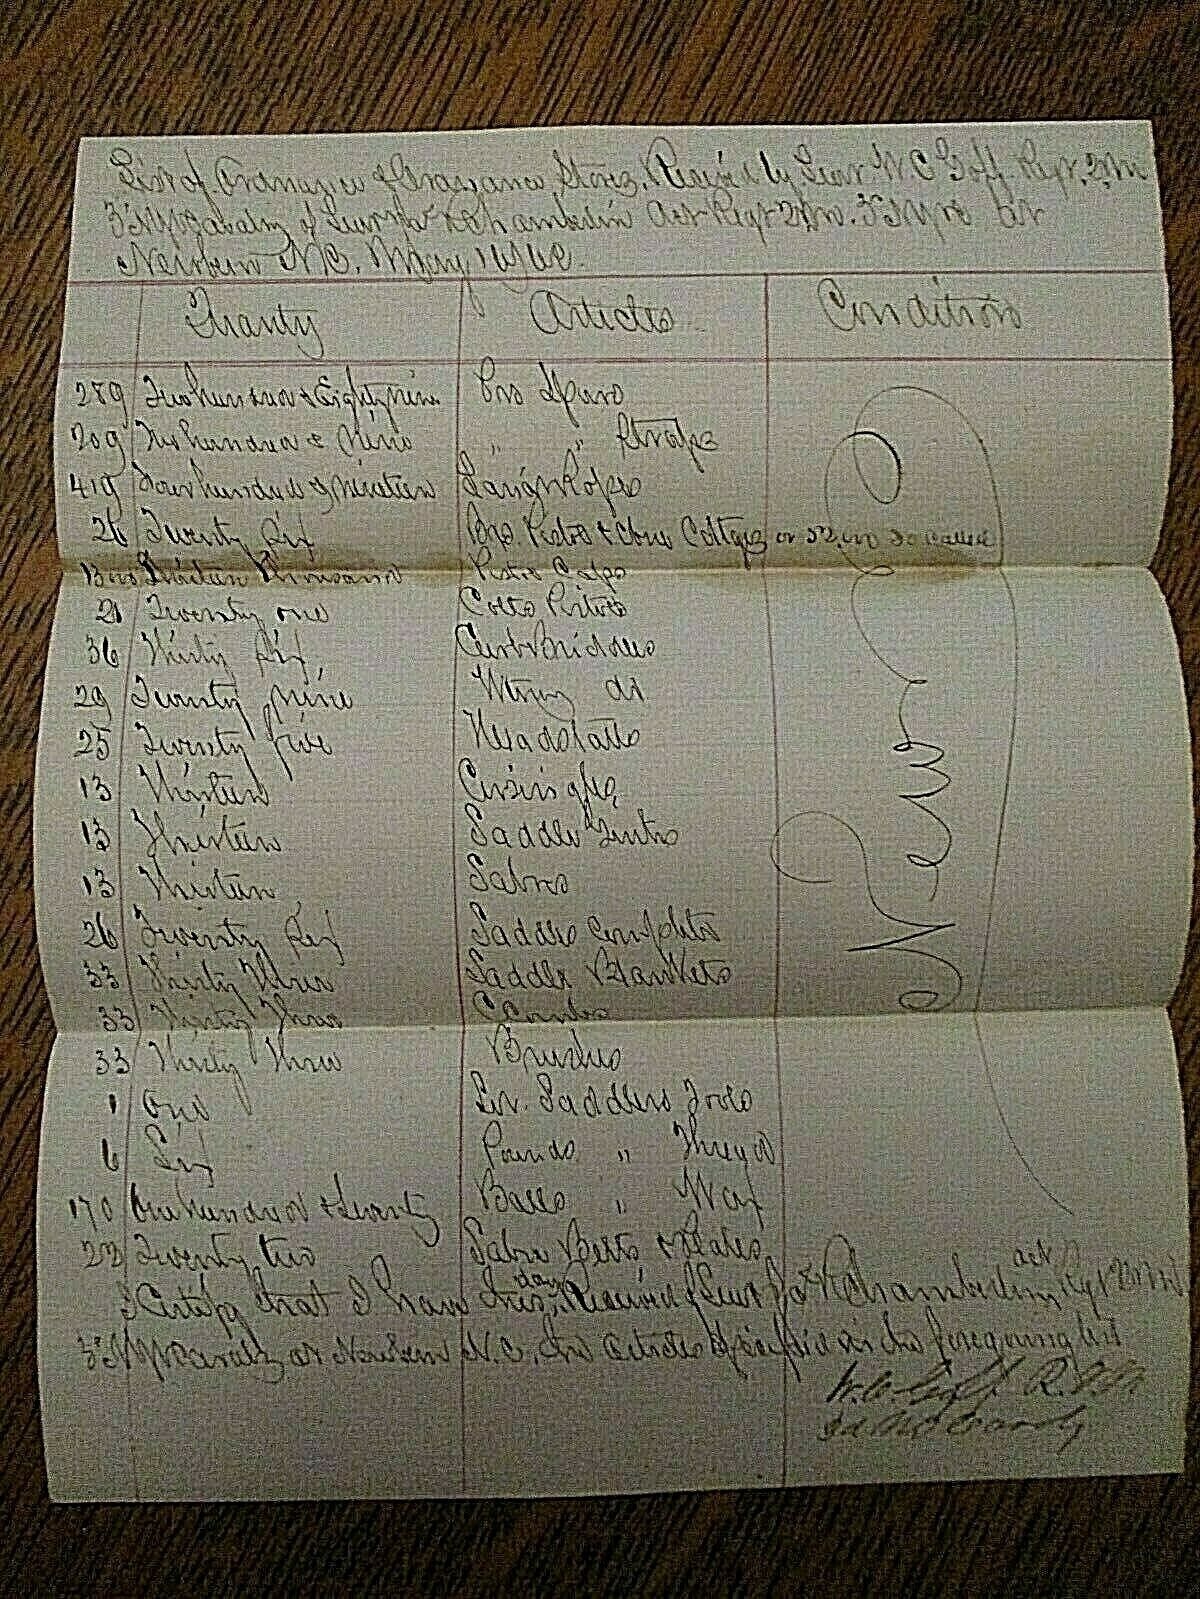 List of Ordnance & Ordnance Stores Received by Lieut W. C. Goff Regt. Q.M.
3d N.Y. Cavalry of Lieut Chamberlin Act Regt Q.M. 3d N.Y. at
Newbern N.C. May
Quanty Articles Condition
289 Two hundred & Eighty nine Prs Spurs
209 Two hundred & Nine " " Straps
419 Four hundred & Nineteen Lariat Ropes
26 Twenty Six Pistol & Cone so called
13000 Thirteen Thousand Pistol Caps
21 Twenty one Colts Pistols
36 Thirty Six Curb Bridles
29 Twenty nine Watering do
25 Twenty five Headstalls
13 Thirteen Cirsingles
13 Thirteen Saddle
13 Thirteen Sabres
26 Twenty Six Saddles Complete
33 Thirty Three Saddle Blankets
33 Thirty Three Combs
33 Thirty Three Brushes
1 One Saddlers Tools
6 Six Pounds " Thread
170 One hundred & Seventy Balls " Wax
22 Twenty two Sabre Belts & Plates
New
I Certify that I have this day Received of Lieut Chamberlin act Regt Q.M.
3d N.Y. Cavalry at Newbern N.C. the articles specified in the foregoing list
W. C. Goff R.Q.M.
3d Cavalry